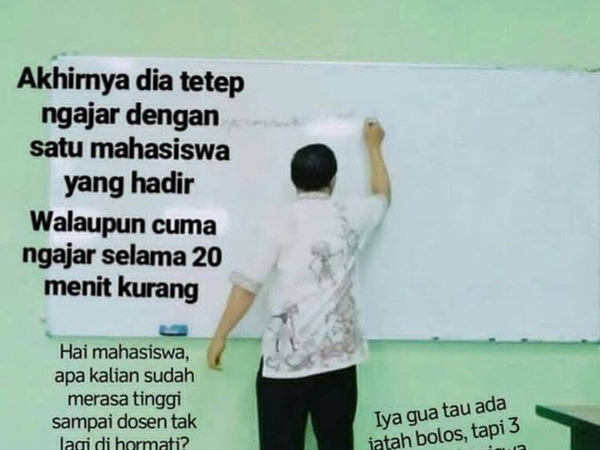 Akhirnya dia tetep
ngajar dengan
satu mahasiswa
yang hadir
Walaupun cuma
ngajar selama 20
menit kurang
Hai mahasiswa,
apa kalian sudah
merasa tinggi
sampai dosen tak
lagi di hormati?
Iya gua tau ada
jatah bolos, tapi 3